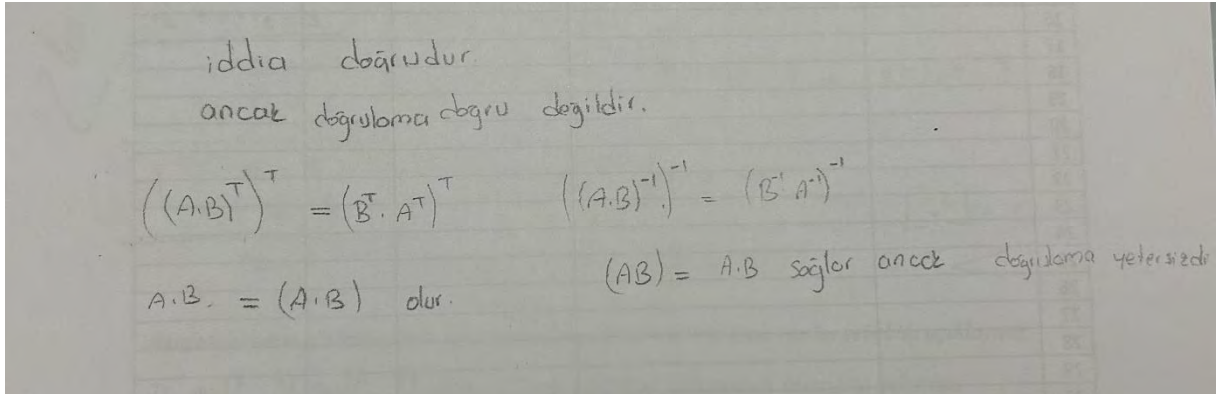 iddia doğrudur.
ancak doğrulama doğru değildir.
((A.B)^T)^T = (B^T. A^T)^T
((A.B)^-1)^-1 = (B^-1 A^-1)^-1
(AB) = A.B sağlar ancak doğrulama yetersizdi
A.B. = (A.B) olur.